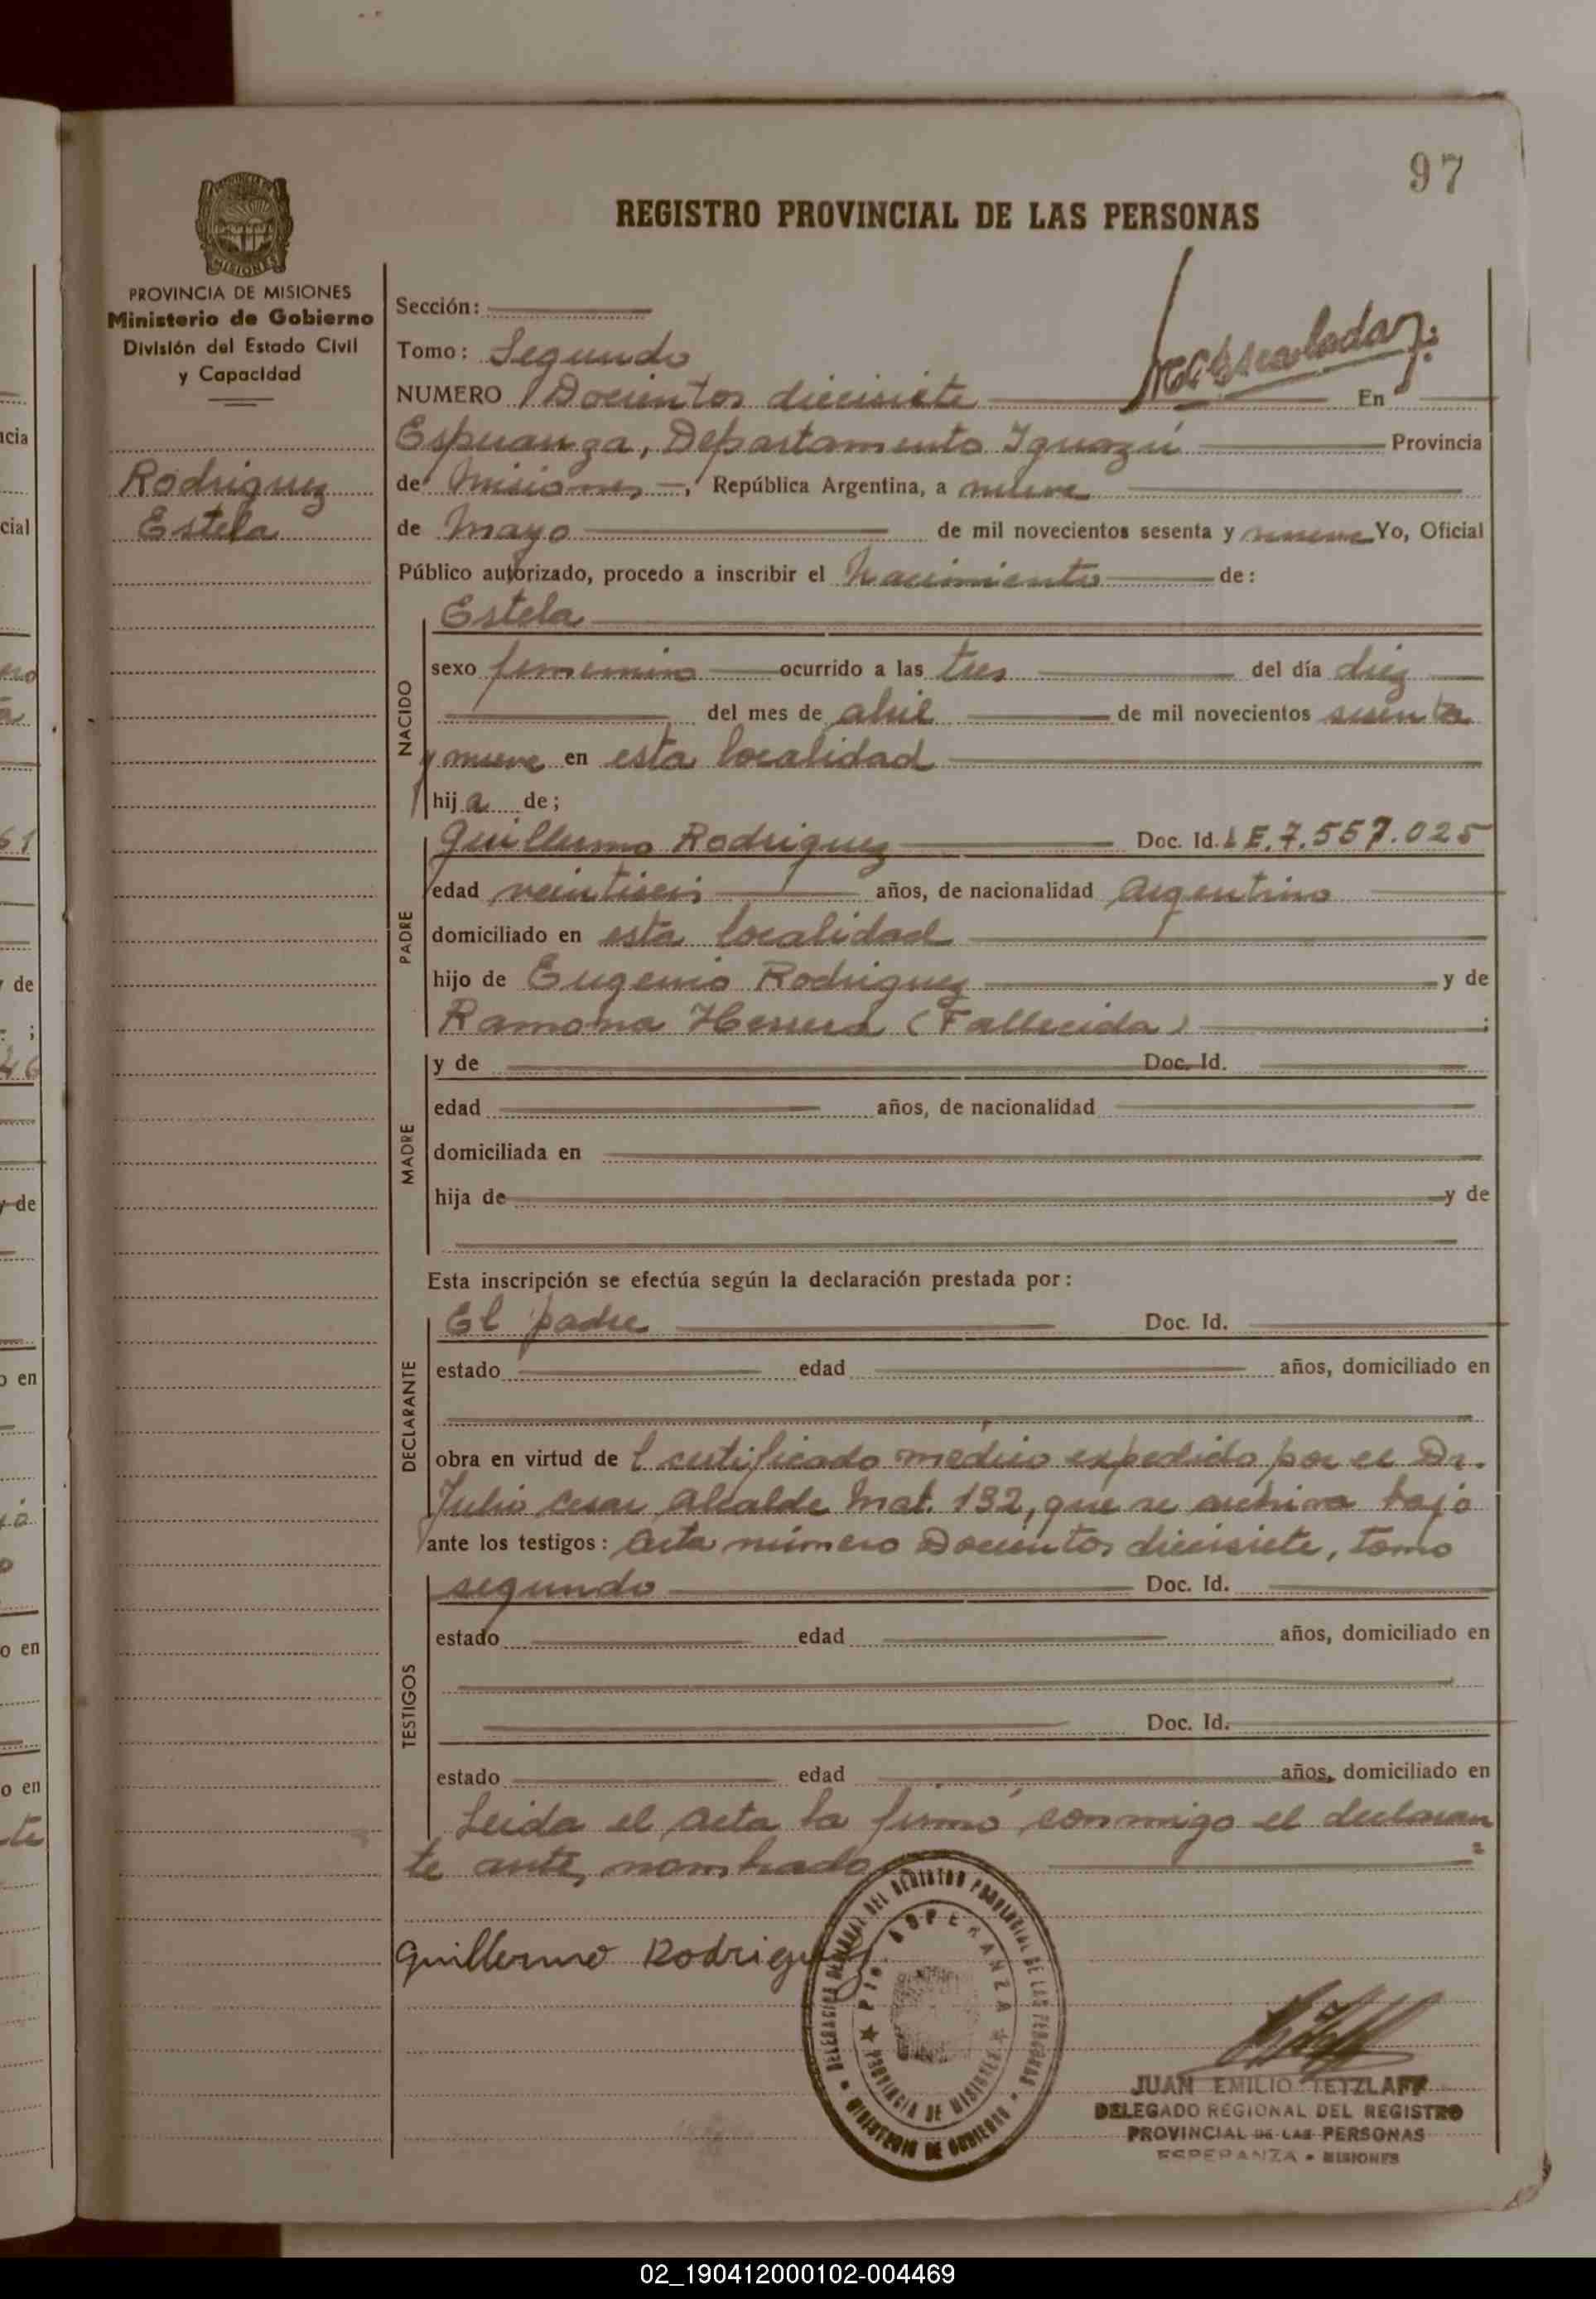 97
REGISTRO PROVINCIAL DE LAS PERSONAS
PROVINCIA DE MISIONES
Ministerio de Gobierno
División del Estado Civil
y Capacidad
Rodriguez
Estela
Sección:
Tomo: Segundo
NUMERO Docientos diecisiete En
Esperanza, Departamento Iguazú Provincia
de Misiones, República Argentina, a nueve
de Mayo de mil novecientos sesenta y nueve Yo, Oficial
Público autorizado, procedo a inscribir el Nacimiento de:
NACIDO
Estela
sexo femenino ocurrido a las tres del día diez
del mes de abril de mil novecientos sesenta
y nueve en esta localidad
hija de;
PADRE
Guillermo Rodriguez Doc. Id. LE. 7.557.025
edad veintiseis años, de nacionalidad Argentino
domiciliado en esta localidad
hijo de Eugenio Rodriguez y de
Ramona Herrera (Fallecida) ;
MADRE
y de Doc. Id.
edad años, de nacionalidad
domiciliada en
hija de y de
Esta inscripción se efectúa según la declaración prestada por:
DECLARANTE
El padre Doc. Id.
estado edad años, domiciliado en
obra en virtud de l certificado medico expedido por el Dr.
Julio Cesar Alcalde Mat. 192, que se archiva bajo
ante los testigos: Acta número Docientos diecisiete, tomo
TESTIGOS
segundo Doc. Id.
estado edad años, domiciliado en
Doc. Id.
estado edad años, domiciliado en
Leida el Acta la firmó conmigo el declaran
te antes nombrado
Guillermo Rodriguez
DELEGACION DEL REGISTRO PROVINCIAL DE LAS PERSONAS
ESPERANZA
PROVINCIA DE MISIONES
MINISTERIO DE GOBIERNO
JUAN EMILIO TETZLAFF
DELEGADO REGIONAL DEL REGISTRO
PROVINCIAL DE LAS PERSONAS
ESPERANZA - MISIONES
02_190412000102-004469